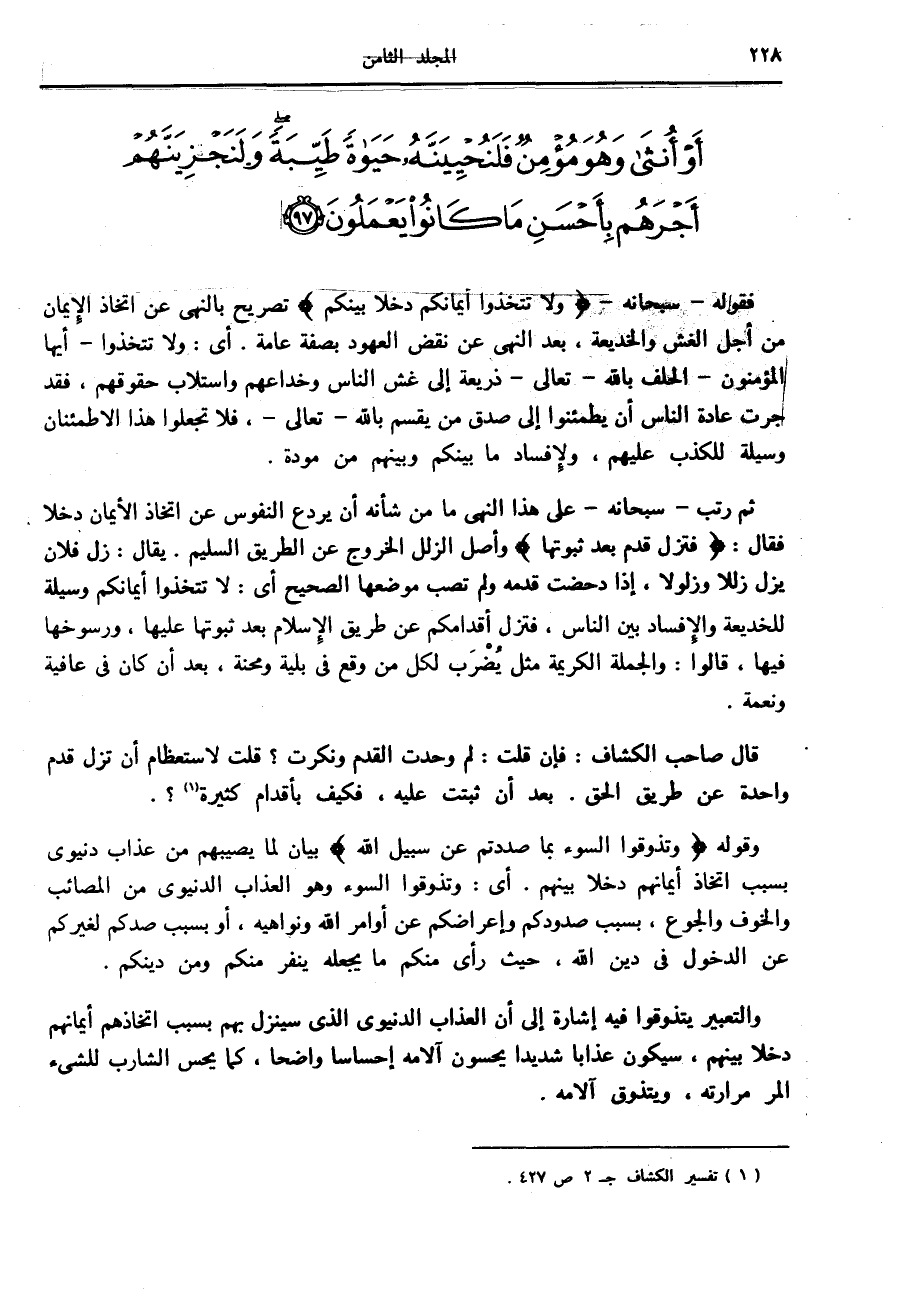 ٢٢٨
المجلد الثامن
أَوْ أُنثَىٰ وَهُوَ مُؤْمِنٌ فَلَنُحْيِيَنَّهُۥ حَيَوٰةً طَيِّبَةً ۖ وَلَنَجْزِيَنَّهُمْ
أَجْرَهُم بِأَحْسَنِ مَا كَانُوا۟ يَعْمَلُونَ ﴿٩٧﴾
فقوله - سبحانه - ﴿ ولا تتخذوا أيمانكم دخلا بينكم ﴾ تصريح بالنهى عن اتخاذ الإيمان
من أجل الغش والخديعة ، بعد النهى عن نقض العهود بصفة عامة . أى : ولا تتخذوا - أيها
المؤمنون - الحلف بالله - تعالى - ذريعة إلى غش الناس وخداعهم واستلاب حقوقهم ، فقد
جرت عادة الناس أن يطمئنوا إلى صدق من يقسم بالله - تعالى - ، فلا تجعلوا هذا الاطمئنان
وسيلة للكذب عليهم ، ولإفساد ما بينكم وبينهم من مودة .
ثم رتب - سبحانه - على هذا النهى ما من شأنه أن يردع النفوس عن اتخاذ الأيمان دخلا
فقال : ﴿ فتزل قدم بعد ثبوتها ﴾ وأصل الزلل الخروج عن الطريق السليم . يقال : زل فلان
يزل زللا وزلولا ، إذا دحضت قدمه ولم تصب موضعها الصحيح أى : لا تتخذوا أيمانكم وسيلة
للخديعة والإفساد بين الناس ، فتزل أقدامكم عن طريق الإسلام بعد ثبوتها عليها ، ورسوخها
فيها ، قالوا : والجملة الكريمة مثل يُضْرَب لكل من وقع فى بلية ومحنة ، بعد أن كان فى عافية
ونعمة .
قال صاحب الكشاف : فإن قلت : لم وحدت القدم ونكرت ؟ قلت لاستعظام أن تزل قدم
واحدة عن طريق الحق . بعد أن ثبتت عليه ، فكيف بأقدام كثيرة(١) ؟ .
وقوله ﴿ وتذوقوا السوء بما صددتم عن سبيل الله ﴾ بيان لما يصيبهم من عذاب دنيوى
بسبب اتخاذ أيمانهم دخلا بينهم . أى : وتذوقوا السوء وهو العذاب الدنيوى من المصائب
والخوف والجوع ، بسبب صدودكم وإعراضكم عن أوامر الله ونواهيه ، أو بسبب صدكم لغيركم
عن الدخول فى دين الله ، حيث رأى منكم ما يجعله ينفر منكم ومن دينكم .
والتعبير يتذوقوا فيه إشارة إلى أن العذاب الدنيوى الذى سينزل بهم بسبب اتخاذهم أيمانهم
دخلا بينهم ، سيكون عذابا شديدا يحسون آلامه إحساسا واضحا ، كما يحس الشارب للشىء
المر مرارته ، ويتذوق آلامه .
( ١ ) تفسير الكشاف جـ ٢ ص ٤٢٧ .